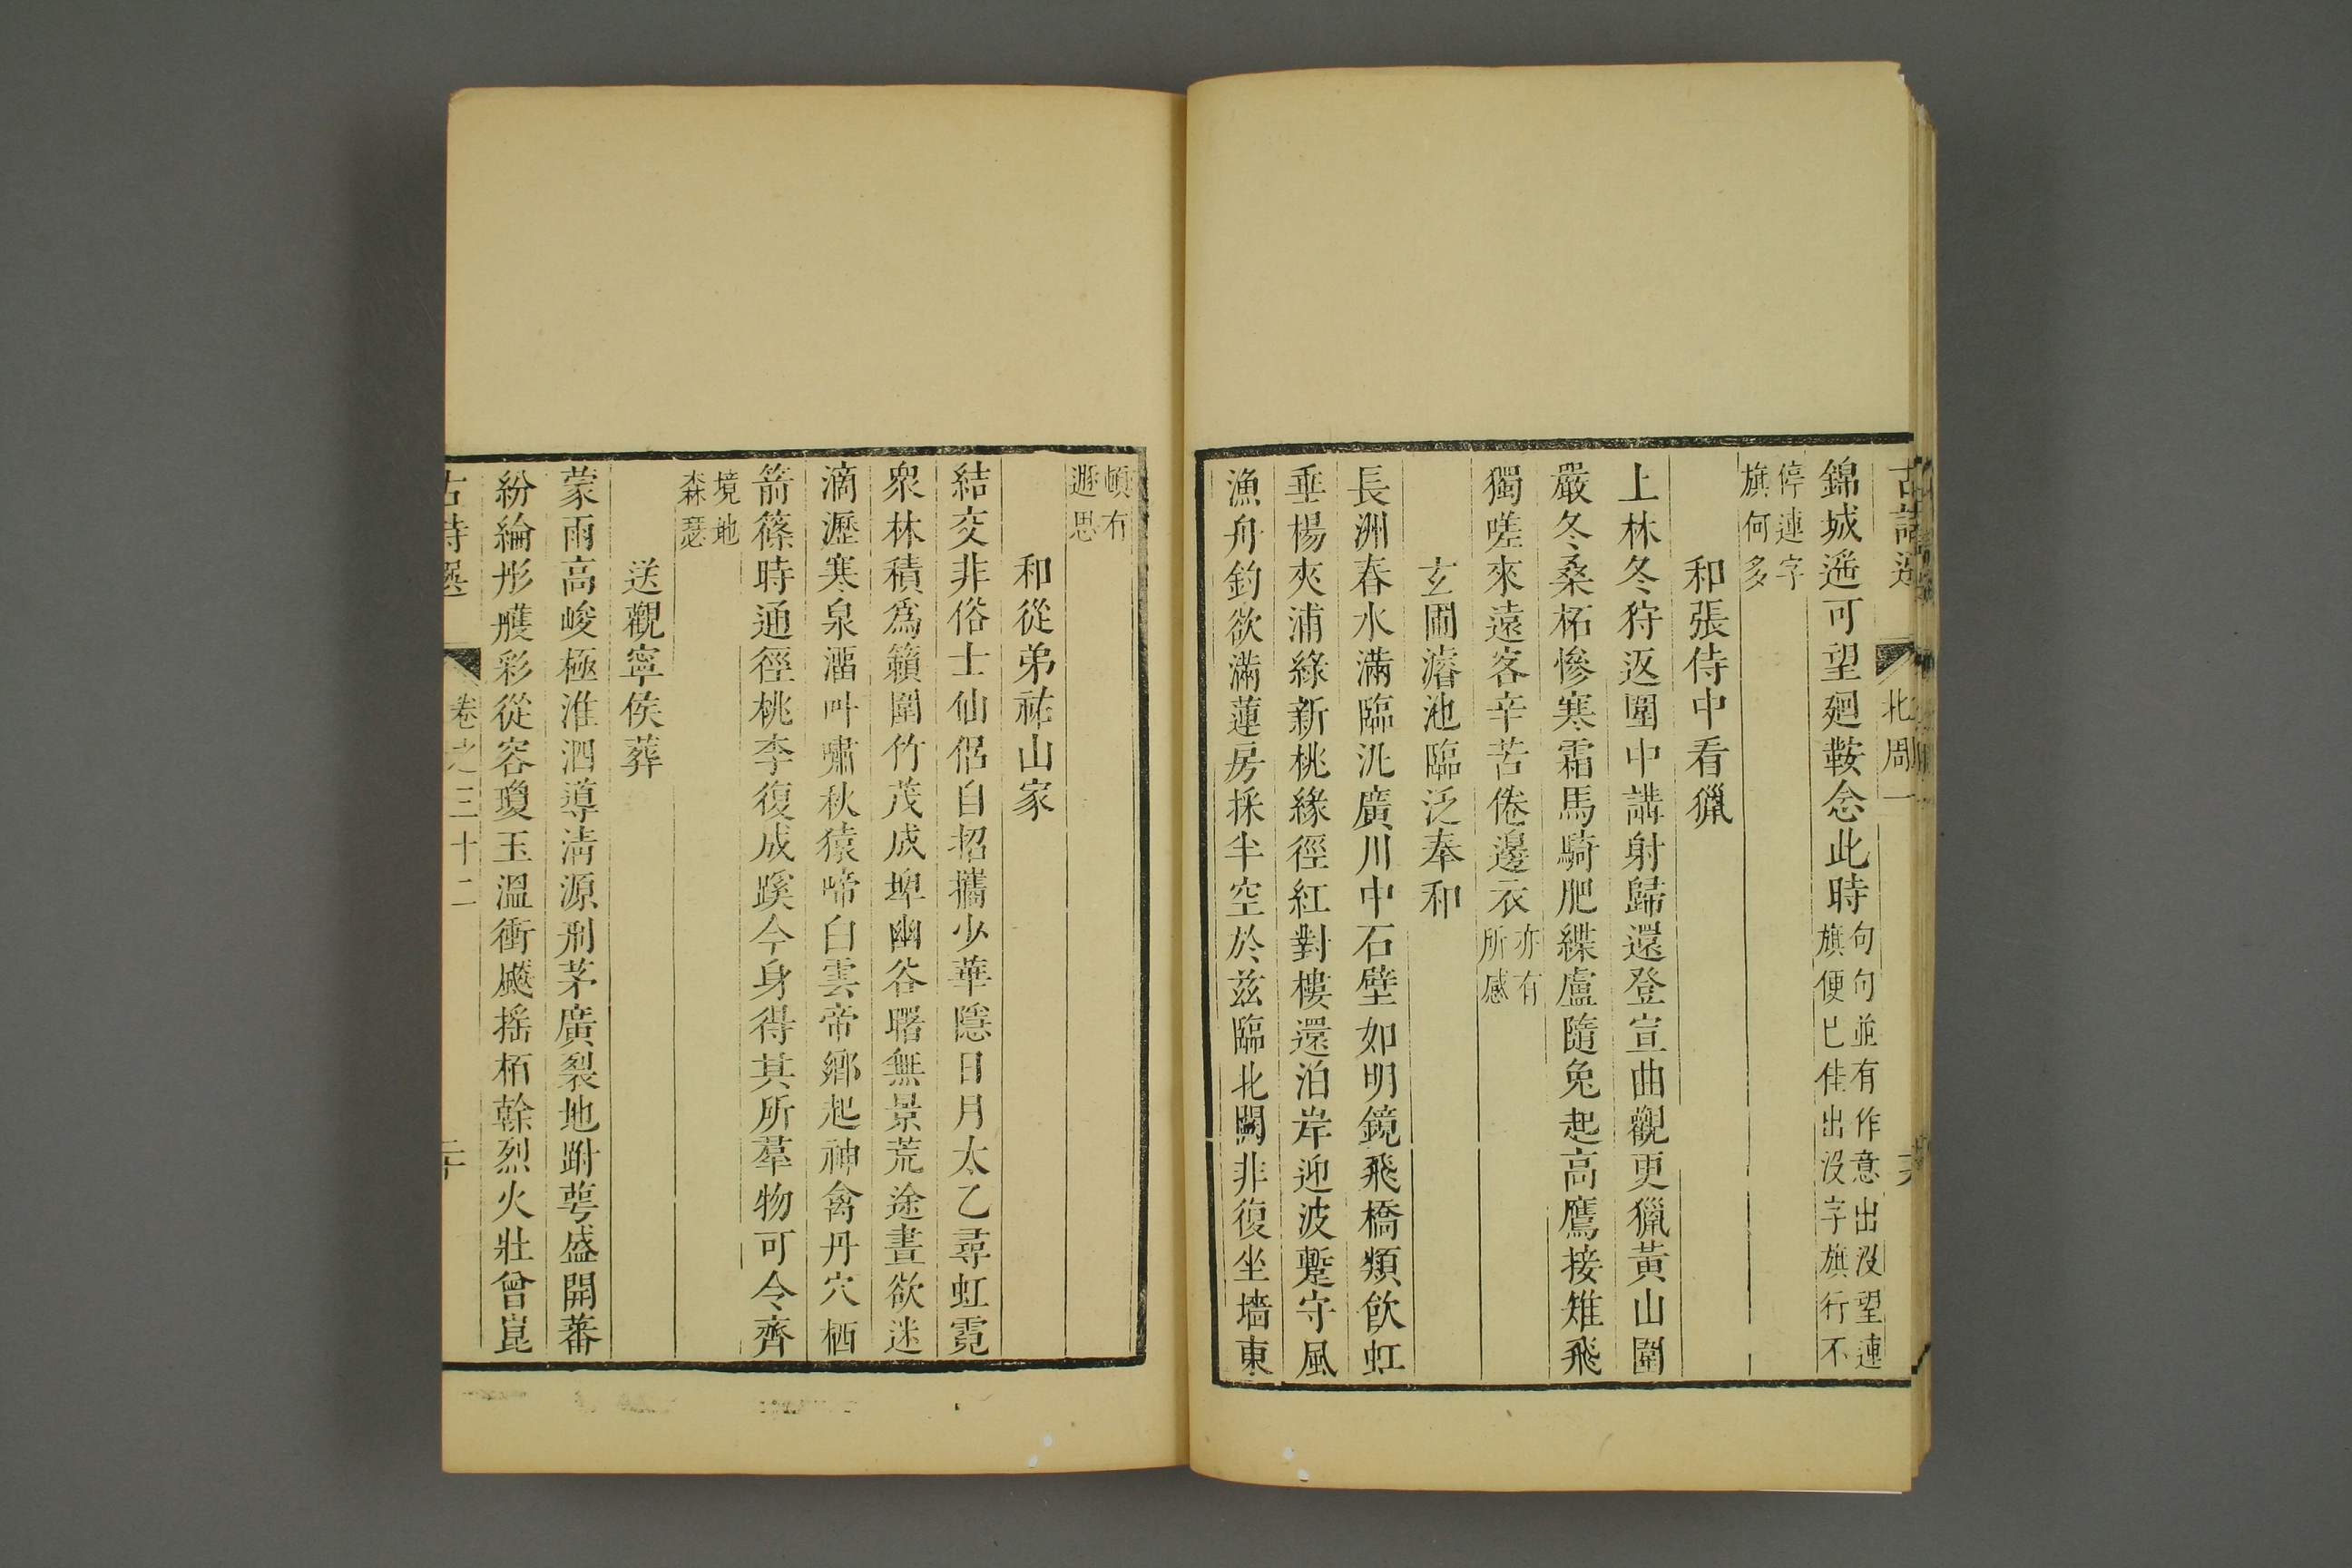 古詩選 北周一
錦城遥可望廻鞍念此時句句並有作意出没望連
旗便已佳出没字旗行不
停連字
旗何多
和張侍中看獵
上林冬狩返圍中講射歸還登宣曲觀更獵黃山圍
嚴冬桑柘慘寒霜馬騎肥緤盧隨兔起高鷹接雉飛
獨嗟來遠客辛苦倦邊衣亦有
所感
玄圃濬池臨泛奉和
長洲春水滿臨泛廣川中石壁如明鏡飛橋類飲虹
垂楊夾浦綠新桃緣徑紅對樓還泊岸迎波蹔守風
漁舟釣欲滿蓮房採半空於兹臨北闕非復坐墻東
頓有
遯思
和從弟祐山家
結交非俗士仙侣自招攜少華隱日月太乙尋虹霓
衆林積爲籟圍竹茂成埤幽谷曙無景荒途晝欲迷
滴瀝寒泉溜叫嘯秋猿啼白雲帝鄉起神禽丹穴栖
箭篠時通徑桃李復成蹊今身得其所羣物可令齊
境地
森瑟
送觀寧侯葬
蒙雨高峻極淮泗導清源刑茅廣裂地跗萼盛開蕃
紛綸彤雘彩從容瓊玉溫衝飈摇栢幹烈火壯曾崑
古詩選 卷之三十二